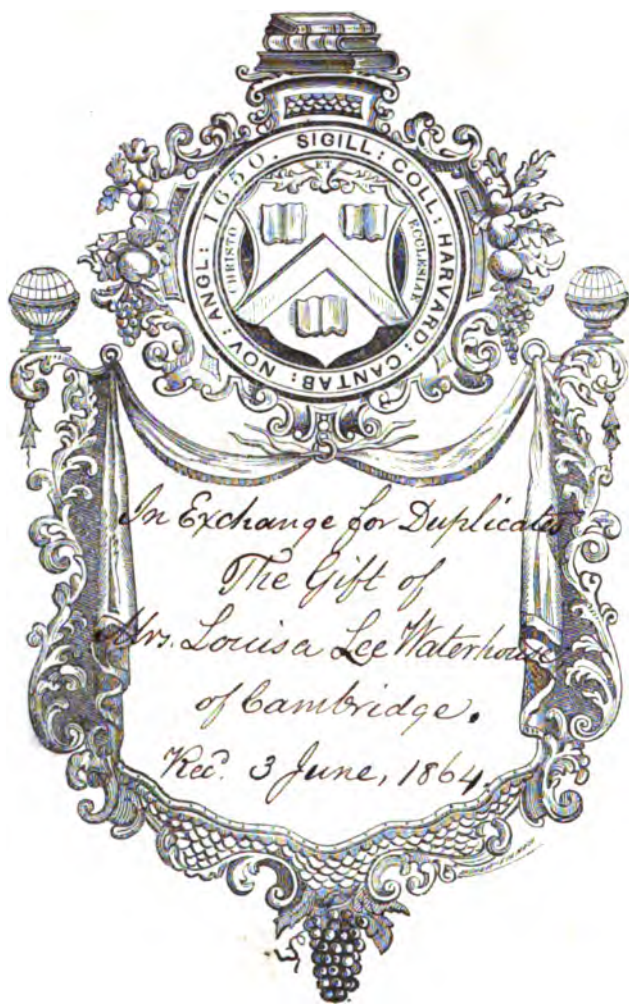 SIGILL: COLL: HARVARD: CANTAB: NOV: ANGL: 1650.
CHRISTO ET ECCLESIAE
In Exchange for Duplicates
The Gift of
Mrs. Louisa Lee Waterhouse
of Cambridge.
Rec.d 3 June, 1864.